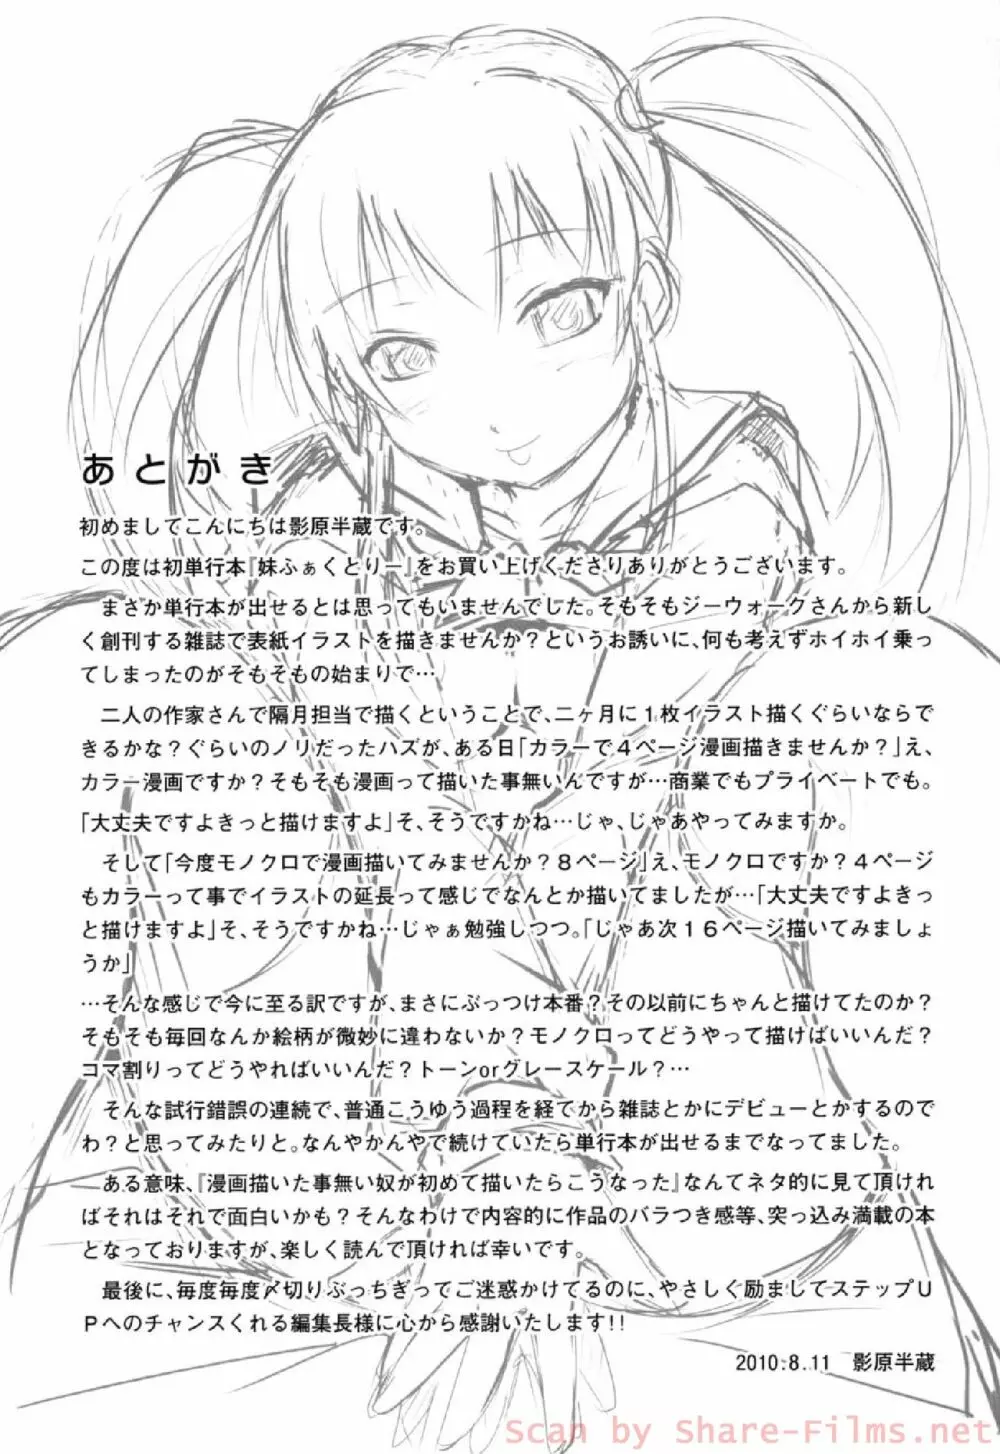 あとがき
初めましてこんにちは影原半蔵です。
この度は初単行本『妹ふぁくとりー』をお買い上げくださりありがとうございます。
まさか単行本が出せるとは思ってもいませんでした。そもそもジーウォークさんから新し
く創刊する雑誌で表紙イラストを描きませんか？というお誘いに、何も考えずホイホイ乗っ
てしまったのがそもそもの始まりで…
二人の作家さんで隔月担当で描くということで、二ヶ月に１枚イラスト描くぐらいならで
きるかな？ぐらいのノリだったハズが、ある日「カラーで４ページ漫画描きませんか？」え、
カラー漫画ですか？そもそも漫画って描いた事無いんですが…商業でもプライベートでも。
「大丈夫ですよきっと描けますよ」そ、そうですかね…じゃ、じゃあやってみますか。
そして「今度モノクロで漫画描いてみませんか？８ページ」え、モノクロですか？４ページ
もカラーって事でイラストの延長って感じでなんとか描いてましたが…「大丈夫ですよきっ
と描けますよ」そ、そうですかね…じゃぁ勉強しつつ。「じゃあ次１６ページ描いてみましょ
うか」
…そんな感じで今に至る訳ですが、まさにぶっつけ本番？その以前にちゃんと描けてたのか？
そもそも毎回なんか絵柄が微妙に違わないか？モノクロってどうやって描けばいいんだ？
コマ割りってどうやればいいんだ？トーンorグレースケール？…
そんな試行錯誤の連続で、普通こうゆう過程を経てから雑誌とかにデビューとかするので
わ？と思ってみたりと。なんやかんやで続けていたら単行本が出せるまでなってました。
ある意味、『漫画描いた事無い奴が初めて描いたらこうなった』なんてネタ的に見て頂けれ
ばそれはそれで面白いかも？そんなわけで内容的に作品のバラつき感等、突っ込み満載の本
となっておりますが、楽しく読んで頂ければ幸いです。
最後に、毎度毎度〆切りぶっちぎってご迷惑かけてるのに、やさしく励ましてステップＵ
Ｐへのチャンスくれる編集長様に心から感謝いたします!!
2010.8.11　影原半蔵
Scan by Share-Films.net